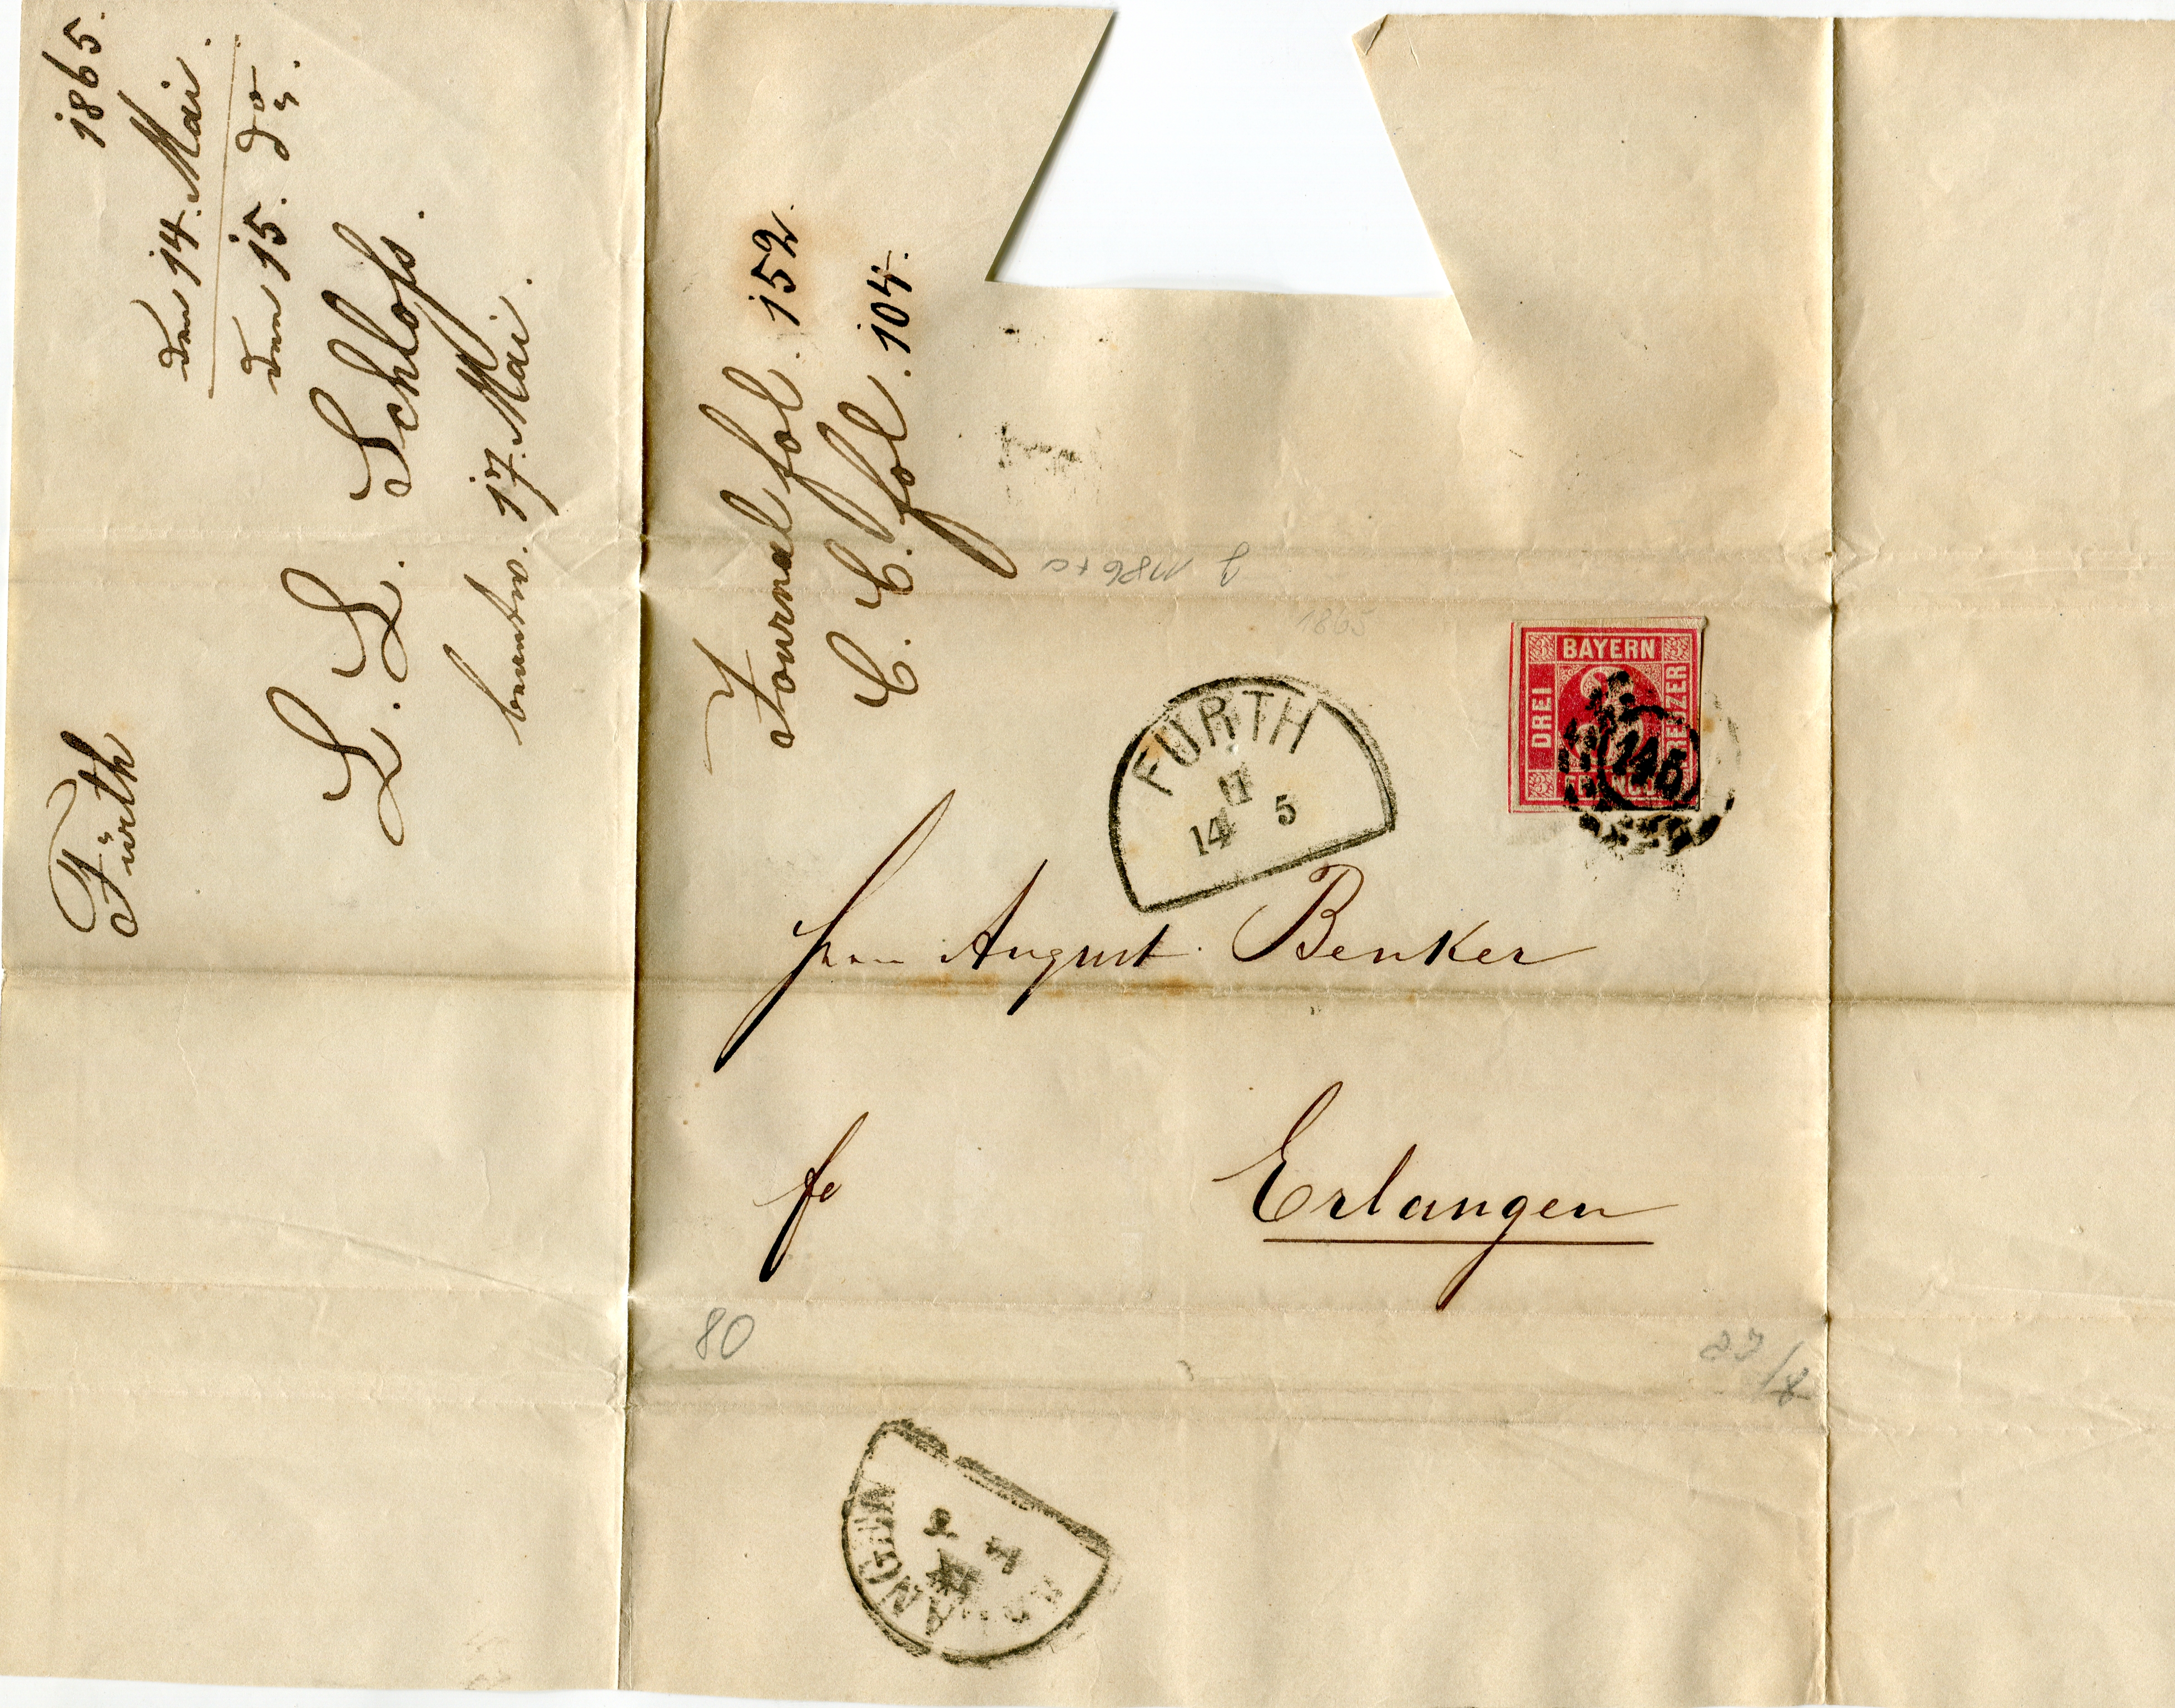 Fürth
1865.
den 14. Mai.
den 15. do.
L. L. Schloss.
beantw. 17. Mai.
Journal fol. 152.
C. C. fol. 104.
1865
BAYERN
DREI
KREUZER
FRANCO
145
FÜRTH
II
14 5
Herrn August Benker
fr
Erlangen
80
ERLANGEN